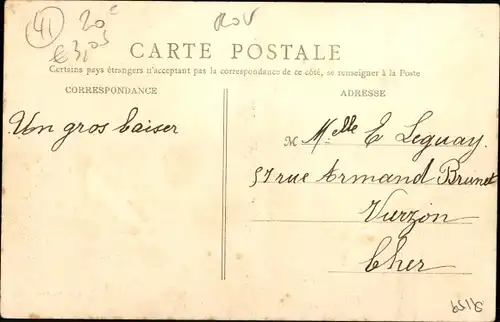 41
20
€ 3,05
CARTE POSTALE
Certains pays étrangers n'acceptant pas la correspondance de ce côté, se renseigner à la Poste
CORRESPONDANCE
ADRESSE
Un gros baiser
M Melle E Leguay.
57 rue Armand Brunet
Vierzon
Cher